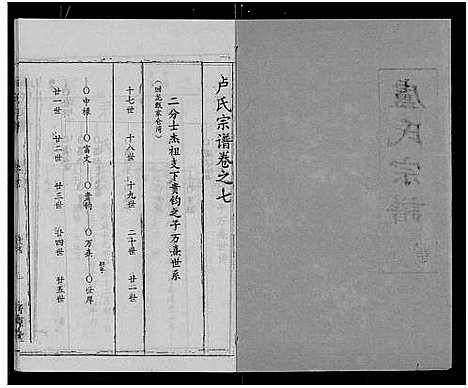 卢氏宗谱
卢氏宗谱卷之七
二分士杰祖支下贵钧之子万熹世系
十七世 十八世 十九世 二十世 廿一世
○申禄 ○富文 ○贵钧 ○万熹 ○世厚
廿一世 廿二世 廿三世 廿四世 廿五世